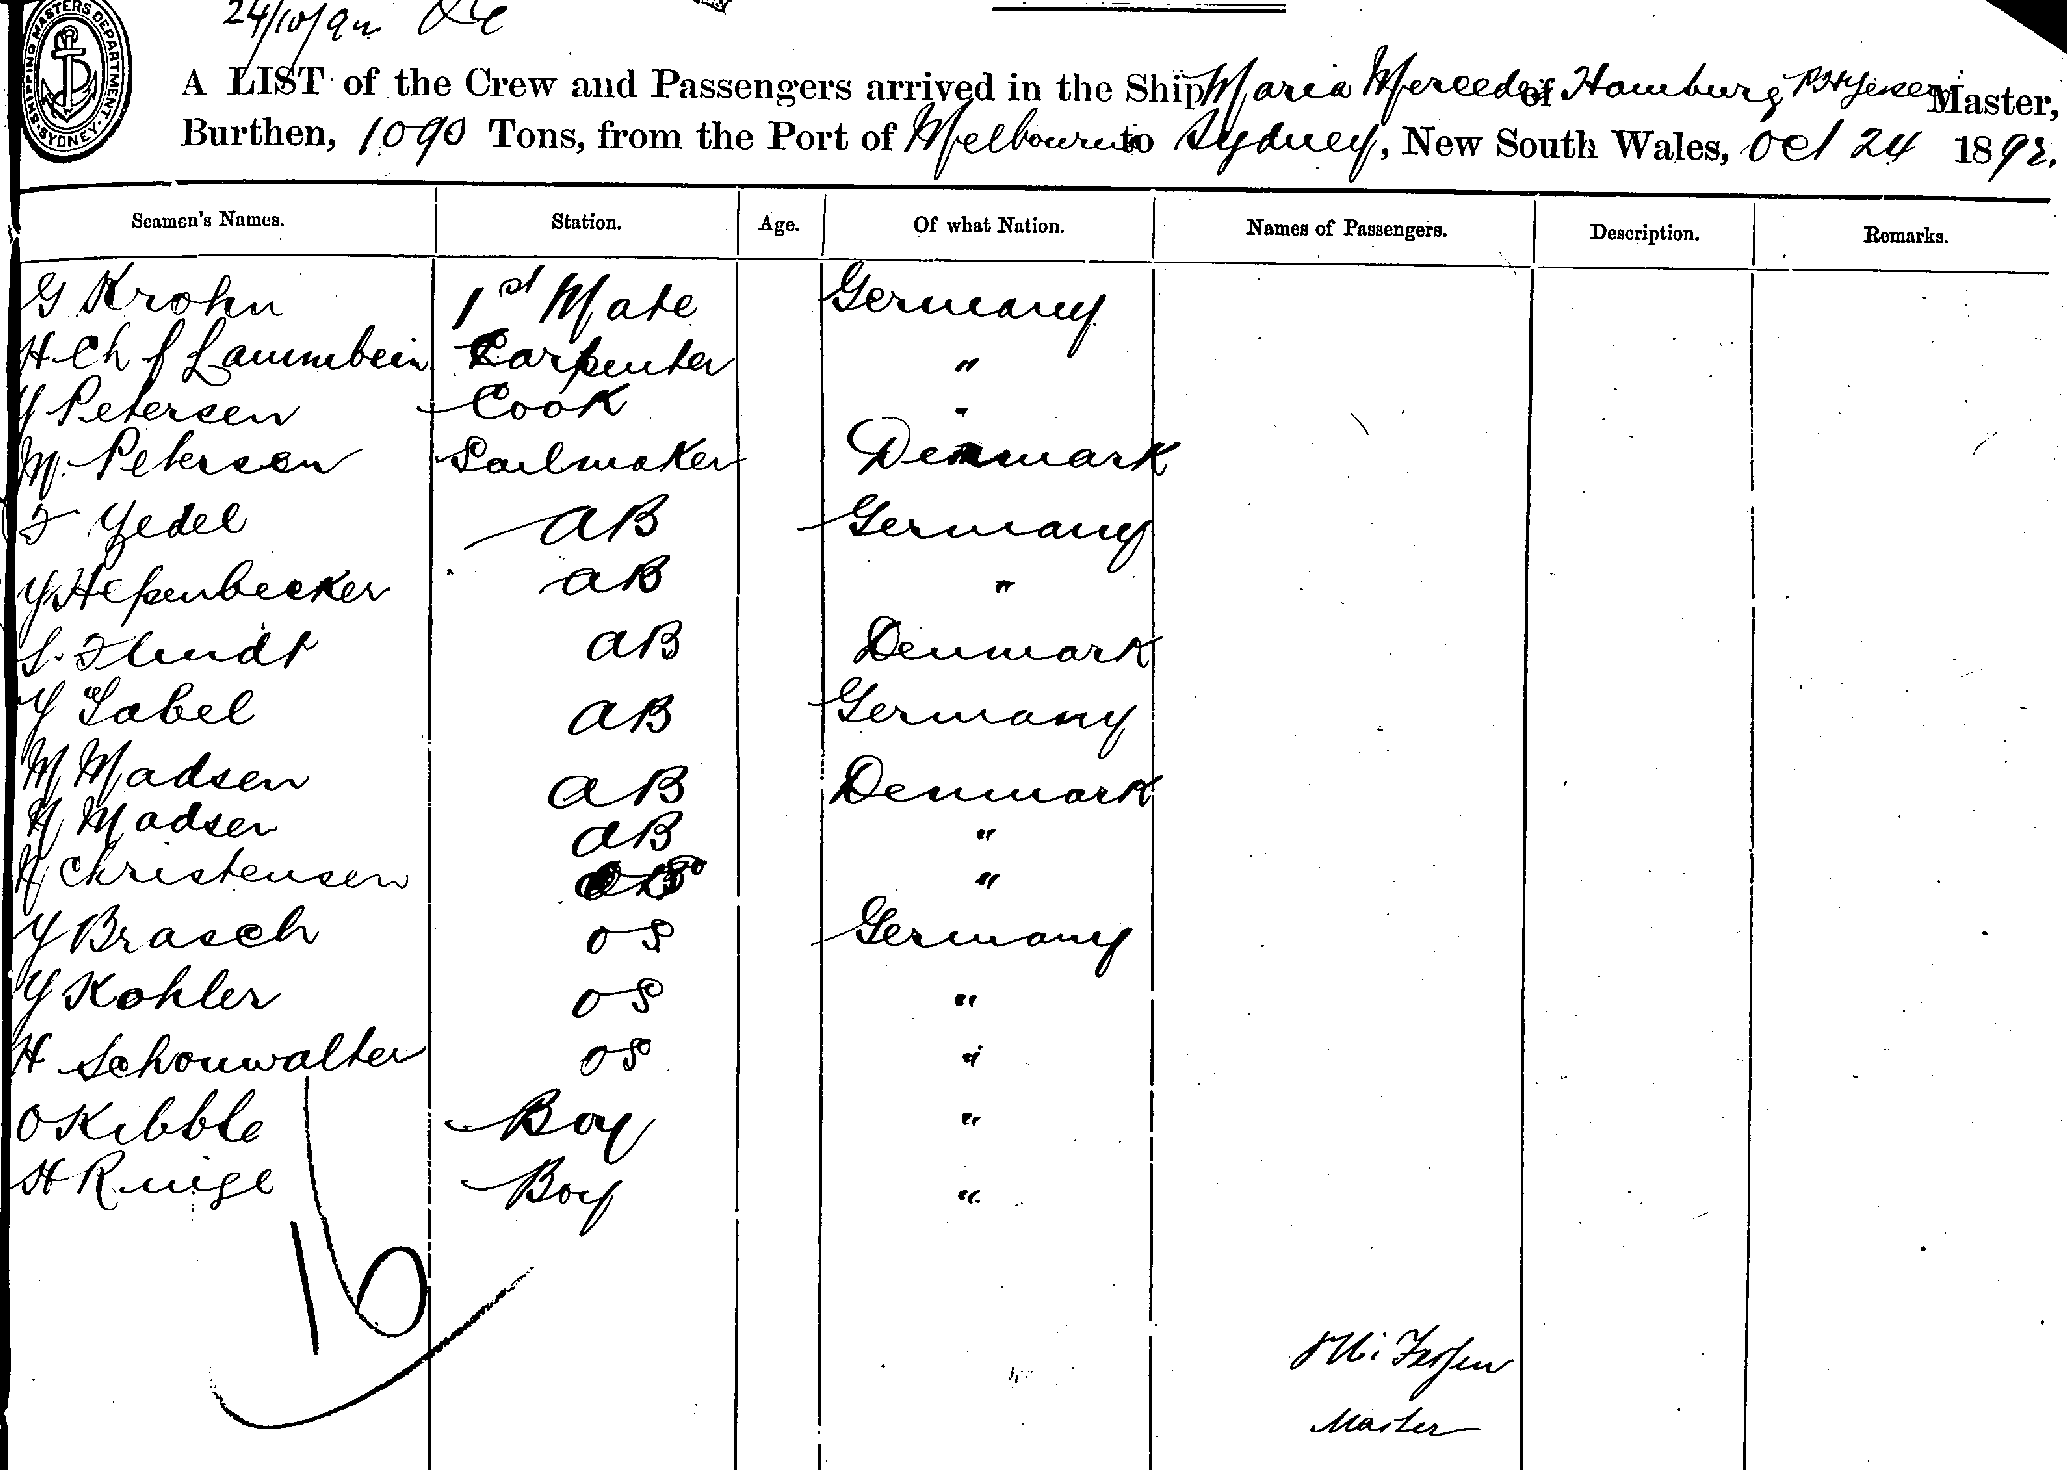 24/10/92
SHIPPING MASTERS DEPARTMENT. SYDNEY.
A LIST of the Crew and Passengers arrived in the Ship Maria Mercedes of Hamburg, Master,
Burthen, 1090 Tons, from the Port of Melbourne to Sydney, New South Wales, Oct 24 1892.
Seamen's Names. Station. Age. Of what Nation. Names of Passengers. Description. Remarks.
G Krohn 1st Mate Germany
H Ch f Lammbein Carpenter "
J Petersen Cook "
M. Petersen Sailmaker Denmark
F Jedel AB Germany
J Hepenbecker AB "
S. Flindt AB Denmark
J Sabel AB Germany
M Madsen AB Denmark
N Madsen AB "
N Christensen OS "
J Brasch OS Germany
J Kohler OS "
H Schonwalter OS "
O Kibble Boy "
H Ruige Boy "
16
Master